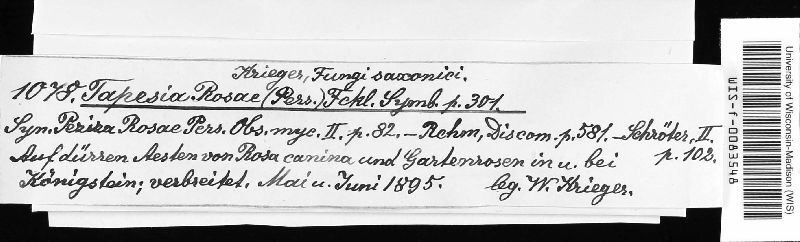 Krieger, Fungi saxonici.
1078. Tapesia Rosae (Pers.) Fckl. Symb. p. 301.
Syn. Peziza Rosae Pers. Obs. myc. II. p. 82. – Rehm, Discom. p. 581. – Schröter, II. p. 102.
Auf dürren Aesten von Rosa canina und Gartenrosen in u. bei
Königstein; verbreitet. Mai u. Juni 1895. leg. W. Krieger.
WIS-f-0083548
University of Wisconsin-Madison (WIS)